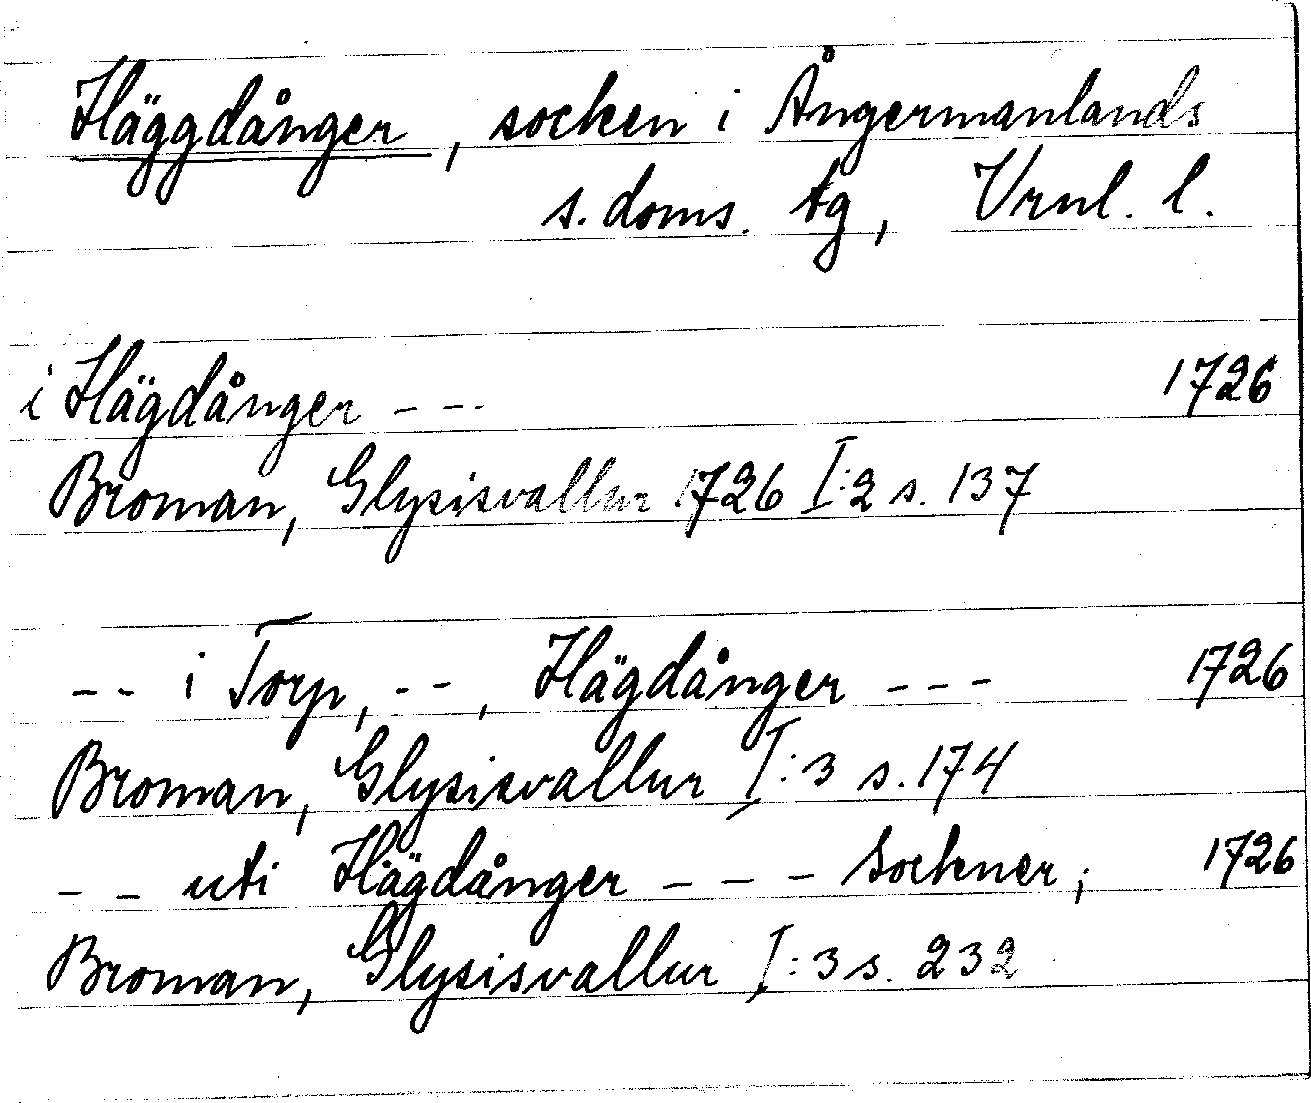 Häggdånger, socken i Ångermanlands
s. doms. tg, Vrnl. l.
i Hägdånger - - - 1726
Broman, Glysisvallur 1726 I:2 s. 137
- - i Torp, - -, Hägdånger - - - 1726
Broman, Glysisvallur I:3 s. 174
- - uti Hägdånger - - - Sockner; 1726
Broman, Glysisvallur I:3 s. 232